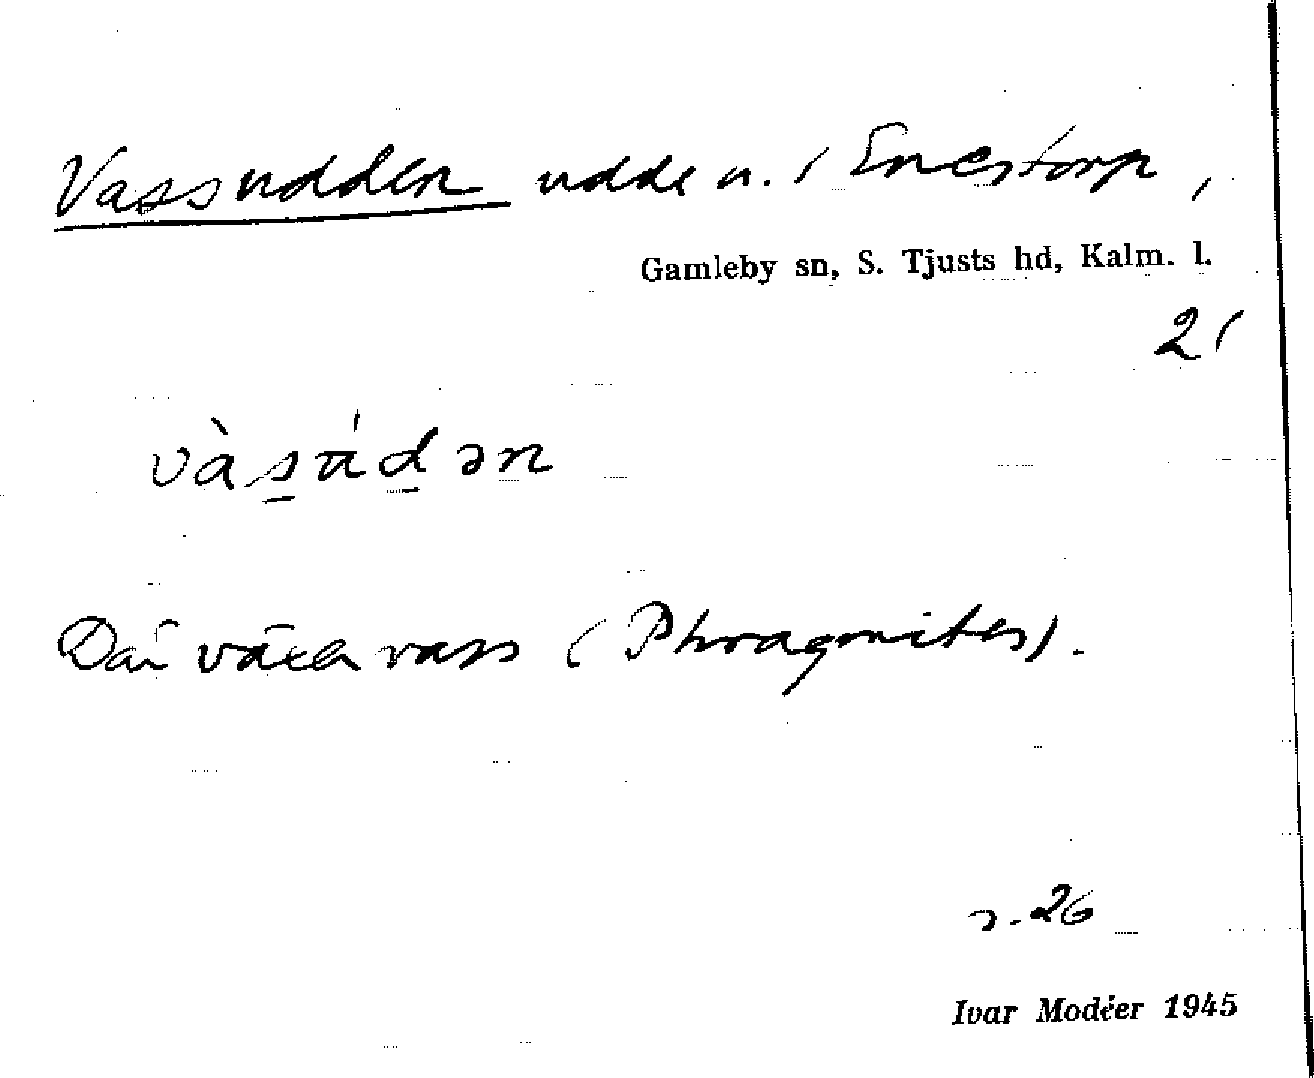 Vassudden udde n. i Enestorp,
Gamleby sn, S. Tjusts hd, Kalm. l.
21
vàsu̇́dən
Där växer vass (Phragmites).
s. 26
Ivar Modéer 1945